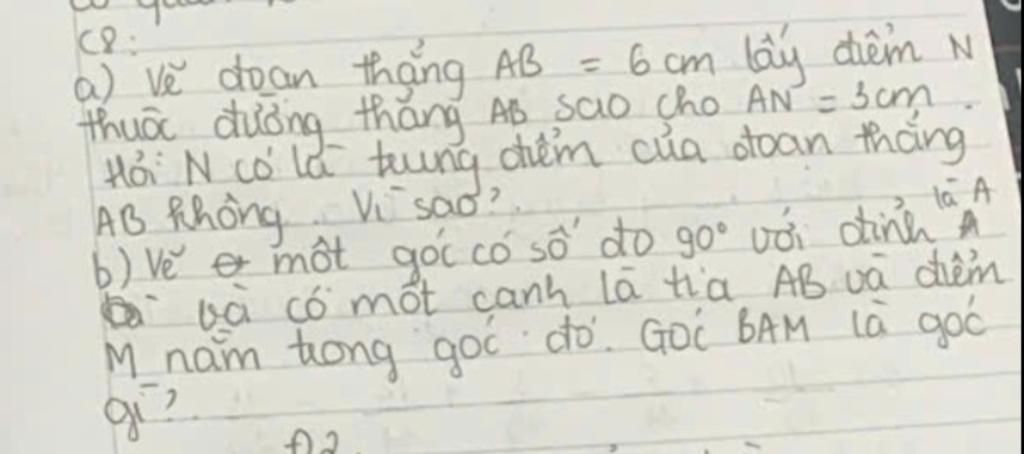 C8:
a) Vẽ đoạn thẳng AB = 6 cm lấy điểm N
thuộc đường thẳng AB sao cho AN = 3cm.
Hỏi N có là trung điểm của đoạn thẳng
AB không. Vì sao?.
b) Vẽ một góc có số đo 90° với đỉnh là A
và có một cạnh là tia AB và điểm
M nằm trong góc đó. Góc BAM là góc
gì?